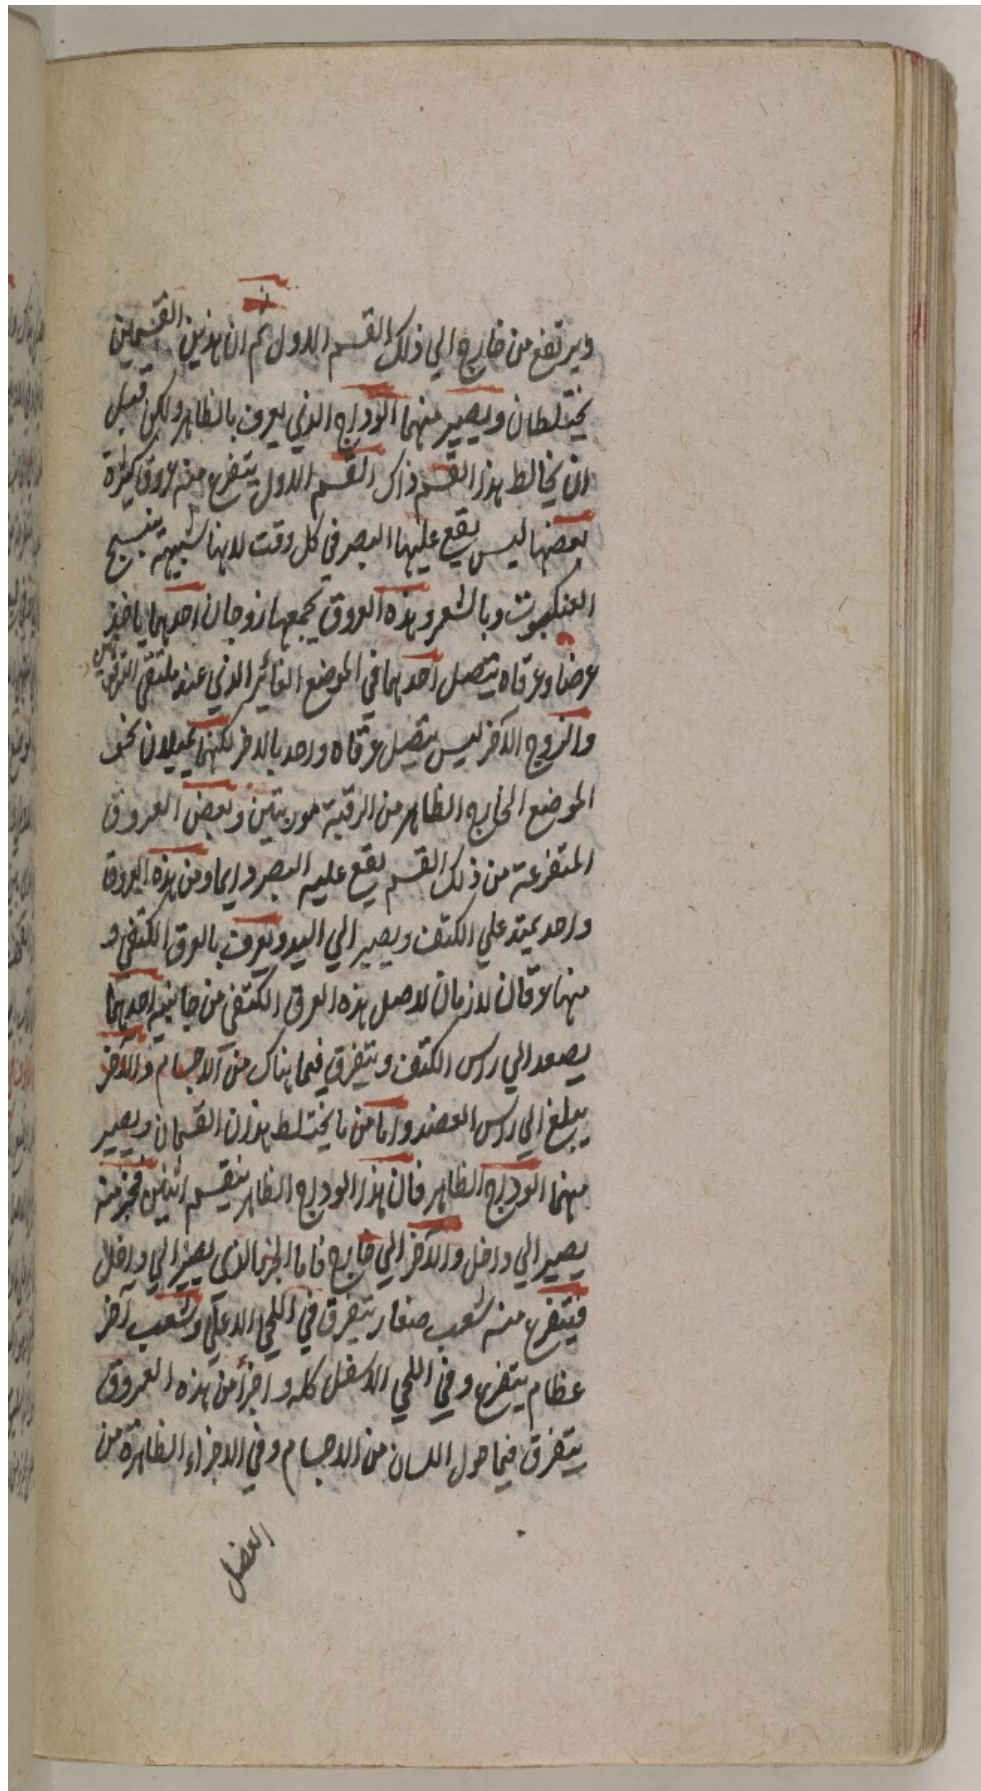 ويرتفع من خارج الي ذلك القسم الاول ثم ان هذين القسمين
يختلطان ويصير منهما الوداج الذي يعرف بالظاهر ولكن قبل
ان يخالط هذا القسم ذاك القسم الاول يتفرع منه عروق كثيرة
بعضها ليس يقع عليها البصر في كل وقت لانها شبيهة بنسج
العنكبوت وبالشعر وهذه العروق يجمعها زوجان احدهما ياخذ
عرضا وعرقاه يتصل احدهما في الموضع الغائر الذي عند ملتقي الترقوتين
والزوج الاخر ليس يتصل عرقاه واحد بالاخر لكنهما يميلان نحو
الموضع الخارج الظاهر من الرقبة موربتين وبعض العروق
المتفرعة من ذلك القسم يقع عليه البصر دايما ومن هذه العروق
واحد يمتد علي الكتف ويصير الي اليد ويعرف بالعرق الكتفي و
منها عرقان لازمان لاصل هذه العرق الكتفي من جانبيه احدهما
يصعد الي راس الكتف ويتفرق فيما هناك من الاجسام والاخر
يبلغ الي راس العضد واما من ما يختلط هذان القسمان ويصير
منهما الوداج الظاهر فان هذا الوداج الظاهر ينقسم اثنين فجزء منه
يصير الي داخل والاخر الي خارج فاما الجزء الذي يصير الي داخل
فيتفرع منه شعب صغار يتفرق في اللحي الاعلي وشعب آخر
عظام يتفرع وفي اللحي الاسفل كله واجزأ من هذه العروق
يتفرق فيما حول اللسان من الاجسام وفي الاجزاء الظاهرة من
العضل